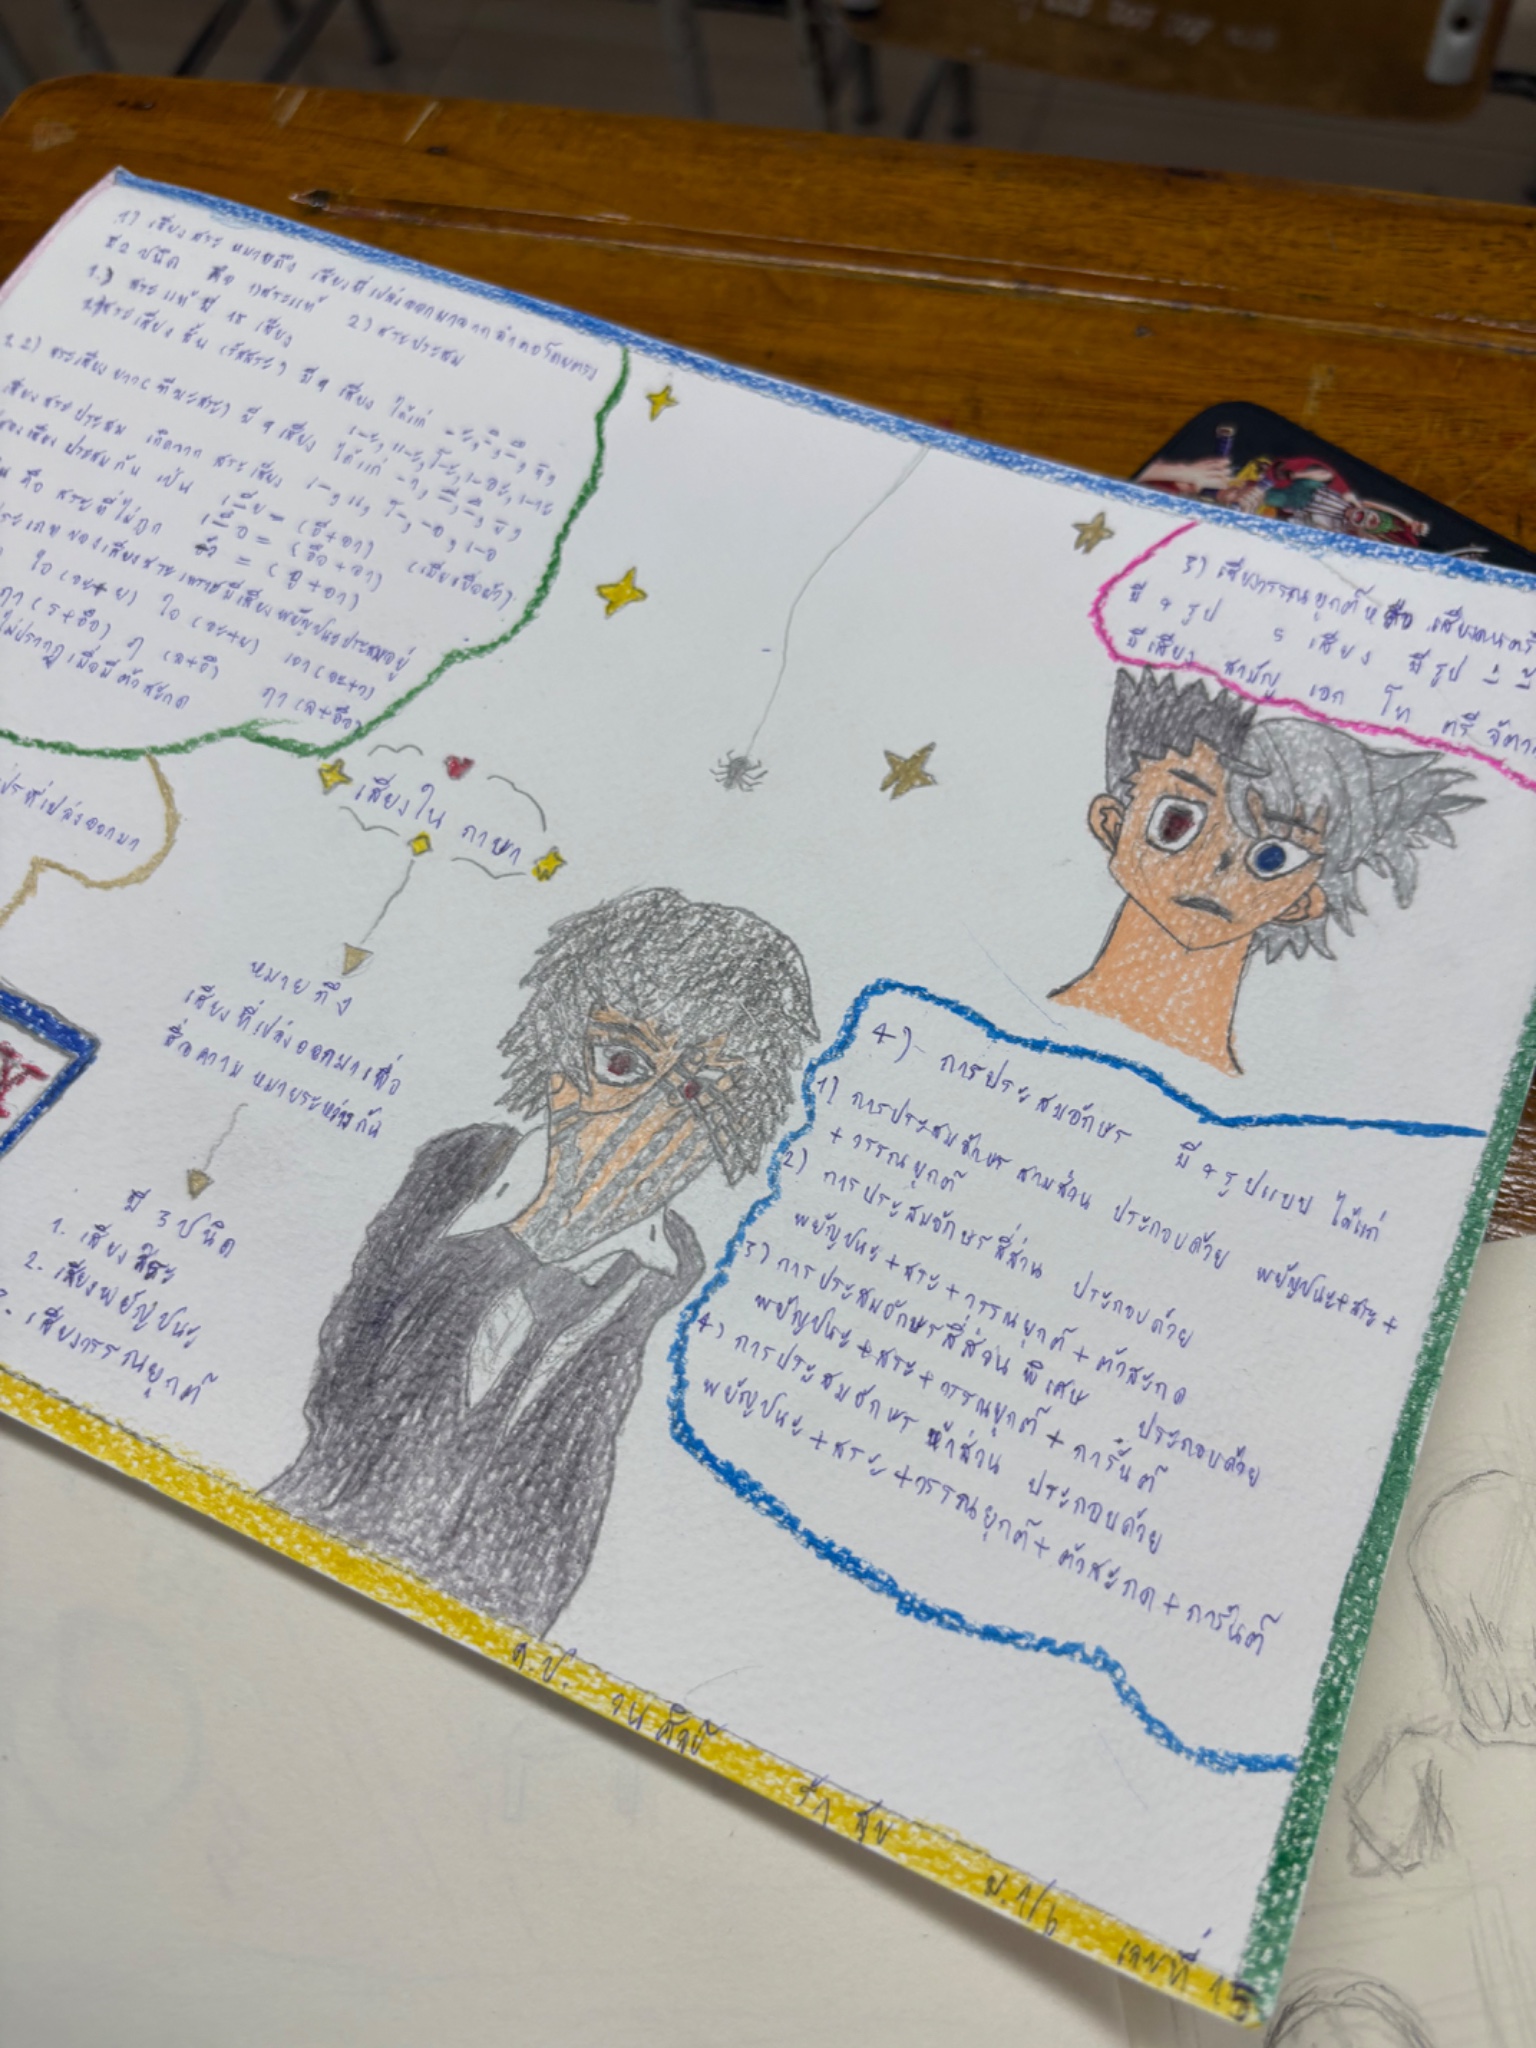 1) เสียงสระ หมายถึง เสียงที่เปล่งออกมาจากลำคอโดยตรง
2 ชนิด คือ 1)สระแท้ 2) สระประสม
1.) สระแท้ มี 18 เสียง
สระเสียงสั้น (รัสสระ) มี 9 เสียง ได้แก่ -ะ, -ิ, -ึ, -ุ,
เ-ะ, แ-ะ, โ-ะ, เ-าะ, เ-อะ
1.2) สระเสียงยาว (ทีฆะสระ) มี 9 เสียง ได้แก่ -า, -ี, -ือ, -ู,
เ-, แ-, โ-, -อ, เ-อ
เสียงสระประสม เกิดจาก สระเสียง
สองเสียง ประสมกัน เป็น เ-ีย = (อี+อา)
เ-ือ = (อือ+อา) (เมียเบื่อผัว)
-ัว = (อู+อา)
คือ สระที่ไม่ถูก
ประเภทของเสียงสระเพราะมีเสียงพยัญชนะประสมอยู่
ไอ (อะ+ย) ใอ (อะ+ย) เอา (อะ+ว)
ฤๅ (ร+อือ) ฦ (ล+อึ) ฦๅ (ล+อือ)
ไม่ปรากฏเมื่อมีตัวสะกด
ที่เปล่งออกมา
เสียงใน ภาษา
หมายถึง
เสียงที่เปล่งออกมาเพื่อ
สื่อความหมายระหว่างกัน
มี 3 ชนิด
1. เสียงสระ
2. เสียงพยัญชนะ
3. เสียงวรรณยุกต์
3) เสียงวรรณยุกต์หรือ เสียงดนตรี
มี 4 รูป 5 เสียง มีรูป -่ -้
มีเสียง สามัญ เอก โท ตรี จัตวา
4) การประสมอักษร มี 4 รูปแบบ ได้แก่
1) การประสมอักษรสามส่วน ประกอบด้วย พยัญชนะ+สระ+
+วรรณยุกต์
2) การประสมอักษรสี่ส่วน ประกอบด้วย
พยัญชนะ+สระ+วรรณยุกต์+ตัวสะกด
3) การประสมอักษรสี่ส่วนพิเศษ ประกอบด้วย
พยัญชนะ+สระ+วรรณยุกต์+การันต์
4) การประสมอักษรห้าส่วน ประกอบด้วย
พยัญชนะ+สระ+วรรณยุกต์+ตัวสะกด+การันต์
ด.ช. รักสุข ม.1/6 เลขที่ 15